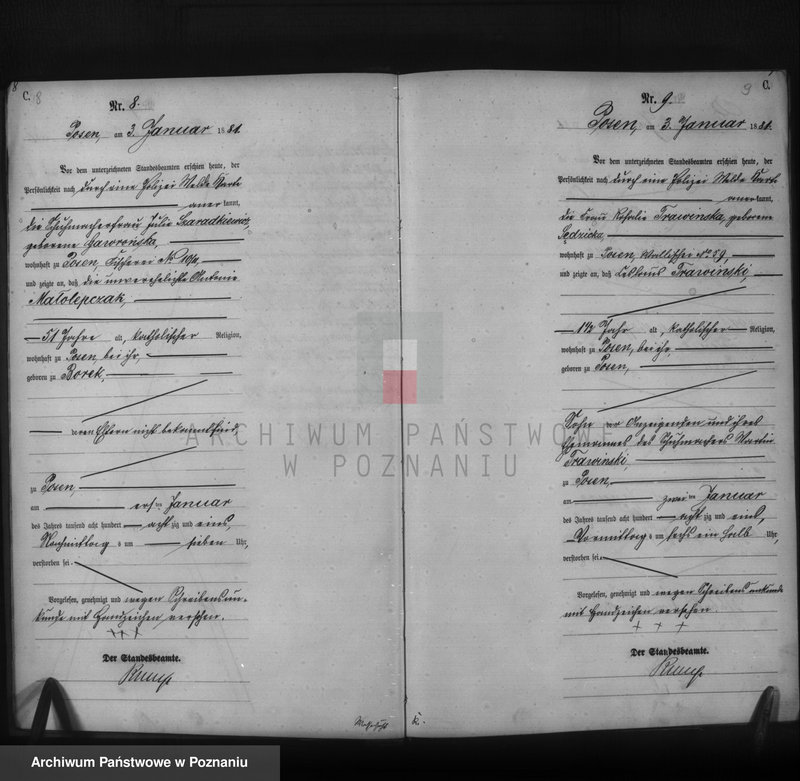 8
C. 8
Nr. 8.
Posen, am 3. Januar 1881.
Vor dem unterzeichneten Standesbeamten erschien heute, der
Persönlichkeit nach durch eine Polizei Melde Karte
anerkannt,
die Schuhmacherfrau Julie Szaradkiewicz,
geborene Gaworońska,
wohnhaft zu Posen, Fischerei No
und zeigte an, daß die unverehelichte Antonie
Małolepczak,
51 Jahre alt, katholischer Religion,
wohnhaft zu Posen, bei ihr,
geboren zu Borek,
deren Eltern nicht bekannt sind,
zu Posen,
am ersten Januar
des Jahres tausend acht hundert achtzig und eins,
Nachmittags um sieben Uhr,
verstorben sei.
Vorgelesen, genehmigt und wegen Schreibensun-
kunde mit Handzeichen versehen.
+++
Der Standesbeamte.
9 C.
Nr. 9.
Posen, am 3. Januar 1881.
Vor dem unterzeichneten Standesbeamten erschien heute, der
Persönlichkeit nach durch eine Polizei Melde Karte
anerkannt,
die Frau Rosalie Trawinska, geborene
Sędzicka
wohnhaft zu Posen, Wallischei No 59,
und zeigte an, daß Trawinski,
1 1/2 Jahr alt, katholischer Religion,
wohnhaft zu Posen, bei ihr,
geboren zu Posen,
Sohn der Anzeigenden und ihres
Ehemannes des Schuhmachers Martin
Trawinski,
zu Posen,
am zweiten Januar
des Jahres tausend acht hundert achtzig und eins,
Vormittags um sechs ein halb Uhr,
verstorben sei.
Vorgelesen, genehmigt und wegen Schreibensunkunde
mit Handzeichen versehen.
+ + +
Der Standesbeamte.
ARCHIWUM PAŃSTWOWE
W POZNANIU
Archiwum Państwowe w Poznaniu